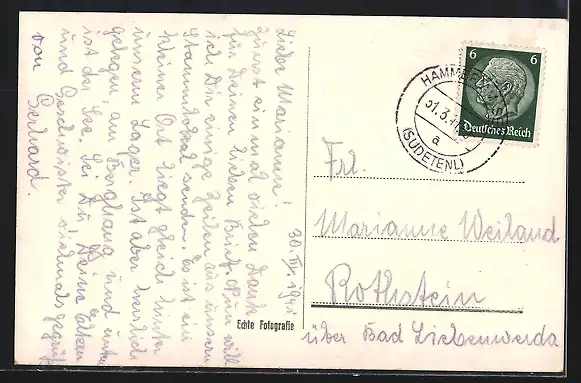 30. III. 1941
Liebe Marianne!
Zuerst einmal vielen Dank
für Deinen lieben Brief. Nun will
ich Dir einige Zeilen aus unserm
senden. Es ist ein
kleiner Ort liegt gleich hinter
unserm Lager. Ist aber herrlich
gelegen, am Berghang und unten
ist der See. Sei Du Deine Eltern
und Geschwister vielmals gegrüßt
von Gerhard.
Echte Fotografie
6 6
Deutsches Reich
HAMMER
31.3.41
a
(SUDETENL)
Frl.
Marianne Weiland
Rothstein
über Bad Liebenwerda